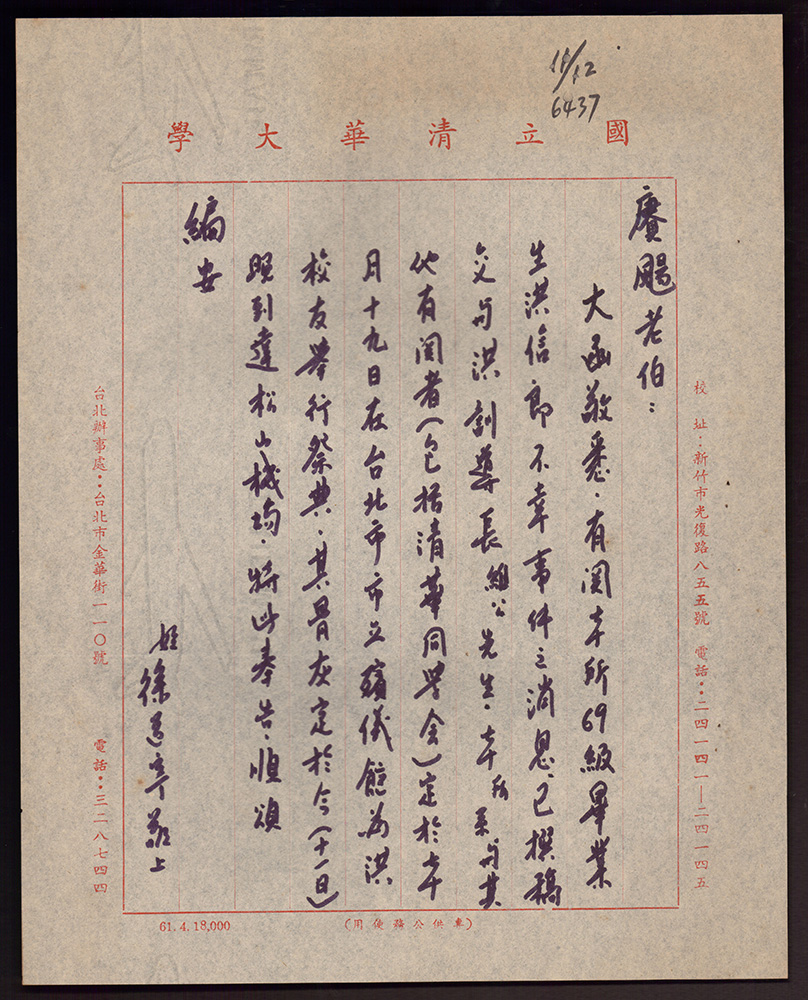 11/12
6437
國立清華大學
賡颺老伯：
大函敬悉．有関本所69級畢業
生洪信郎不幸事件之消息，已撰稿
交与洪訓導長組公先生．本所系与其
他有関者（包括清華同学会）定於本
月十九日在台北市市立殯儀館為洪
校友舉行祭典．其骨灰定於今（十一日）
晚到達松山機場．特此奉告．順頌
編安
姪徐道寧敬上
校址：新竹市光復路八五五號　電話：二四一四一—二四一四五
台北辦事處：台北市金華街一一〇號　電話：三二八七四四
61. 4. 18,000
（專供公務使用）